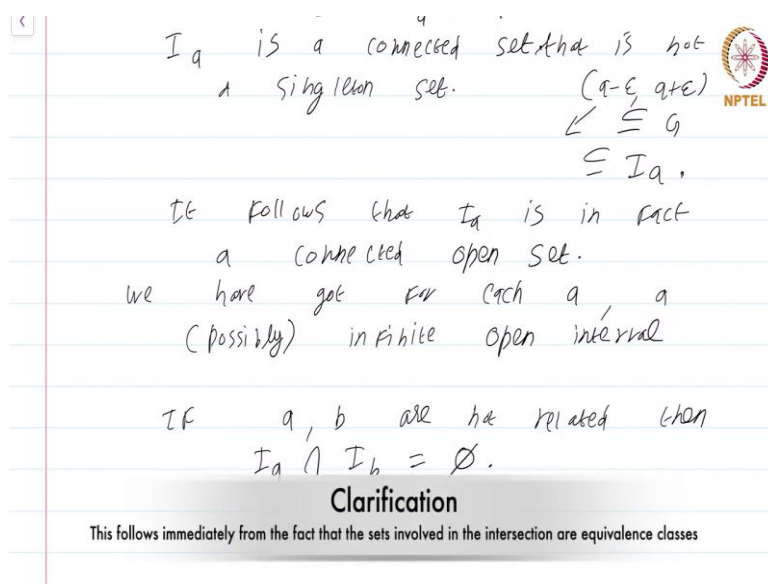 I a is a connected set that is not
a singleton set. (a-ε, a+ε)
NPTEL
↙ ⊆ G
⊆ I a .
It follows that I a is in fact
a connected open set.
we have got for each a, a
(possibly) infinite open interval
If a, b are not related then
I a ∩ I b = ∅.
Clarification
This follows immediately from the fact that the sets involved in the intersection are equivalence classes